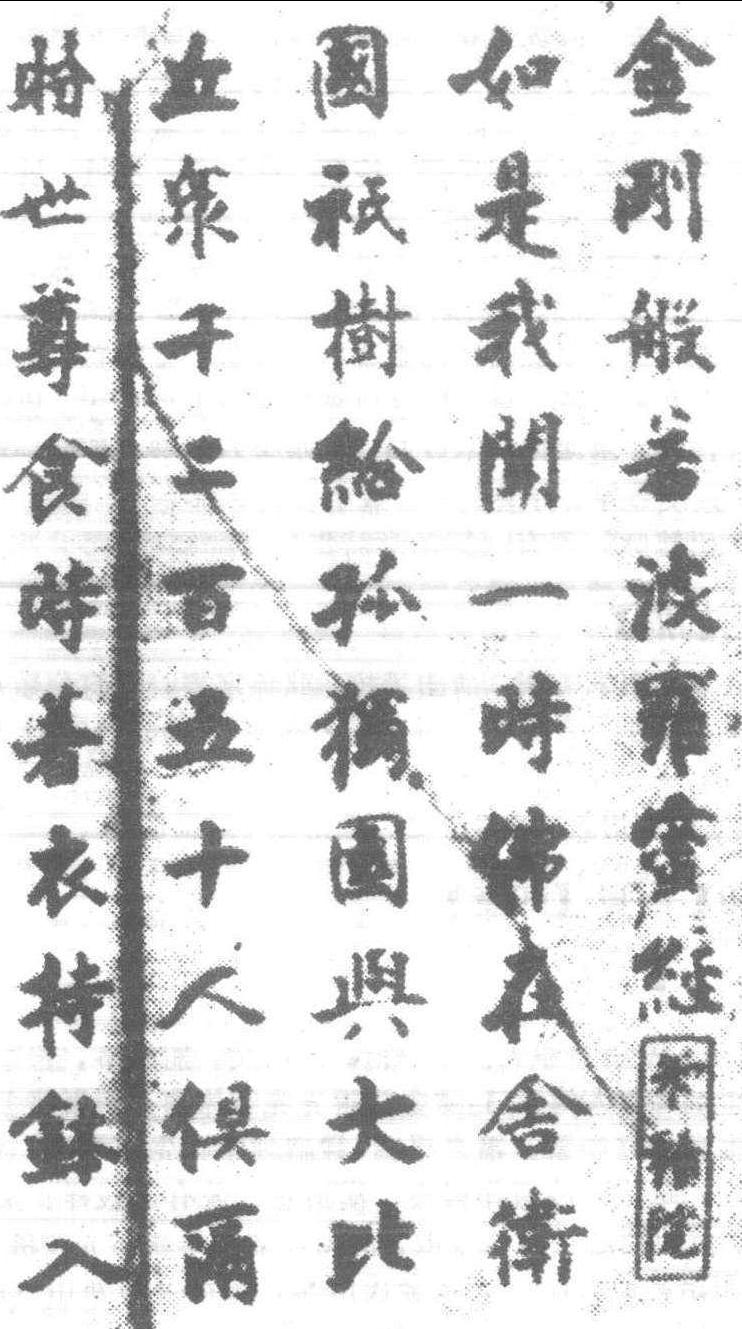 金剛般若波羅蜜經
如是我聞一時佛在舍衛
國祇樹給孤獨園與大比
丘衆千二百五十人俱爾
時世尊食時著衣持鉢入